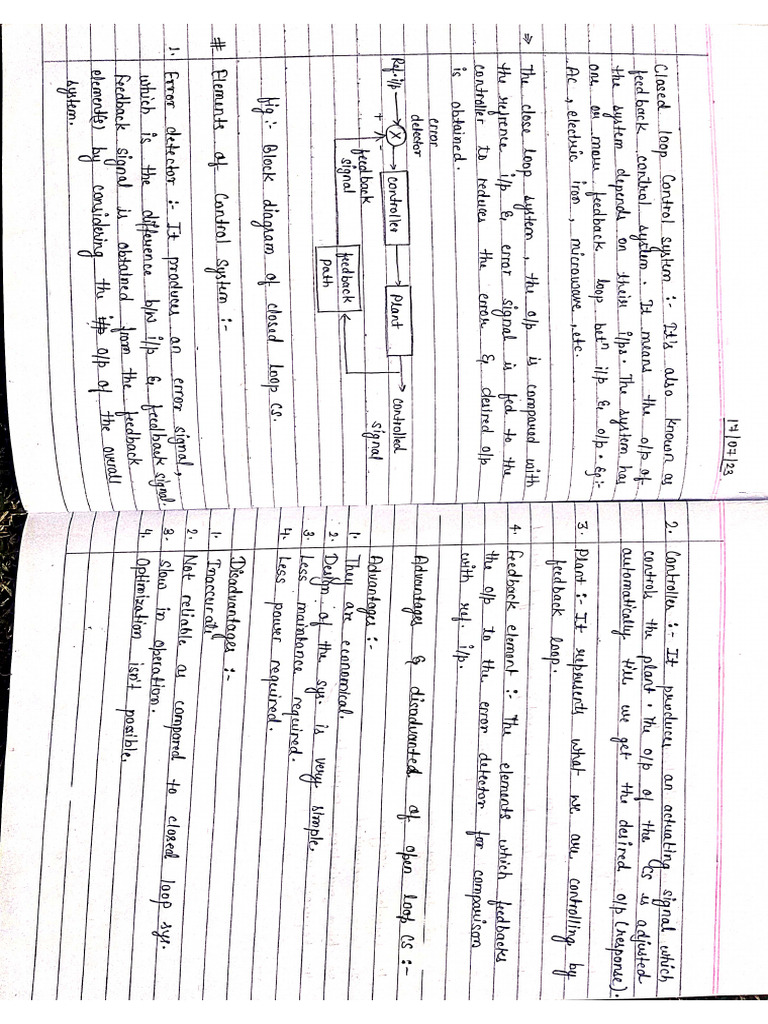 17/07/23
Closed loop Control system :- It's also known as
feedback control system. It means the o/p of
the system depends on their i/ps. The system has
one or more feedback loop betn i/p & o/p. Eg:-
AC, electric iron, microwave, etc.
⇒ The close loop system, the o/p is compared with
the reference i/p & error signal is fed to the
controller to reduces the error & desired o/p
is obtained.
error
detector
Ref. i/p
X
-
+
controller
Plant
controlled
signal
feedback
signal
feedback
path
fig :- Block diagram of closed loop CS.
# Elements of Control System :-
1. Error detector :- It produces an error signal,
which is the difference b/w i/p & feedback signal.
feedback signal is obtained from the feedback
element(s) by considering the o/p of the overall
system.
2. Controller :- It produces an actuating signal which
controls the plant. The o/p of the CS is adjusted
automatically till we get the desired o/p (response).
3. Plant :- It represents what we are controlling by
feedback loop.
4. feedback element :- The elements which feedbacks
the o/p to the error detector for comparison
with ref. i/p.
Advantages & disadvanted of open loop CS :-
Advantages :-
1. They are economical.
2. Design of the sys. is very simple.
3. Less maintance required.
4. Less power required.
Disadvantages :-
1. Inaccurate
2. Not reliable as compared to closed loop sys.
3. Slow in operation.
4. Optimization isn't possible.